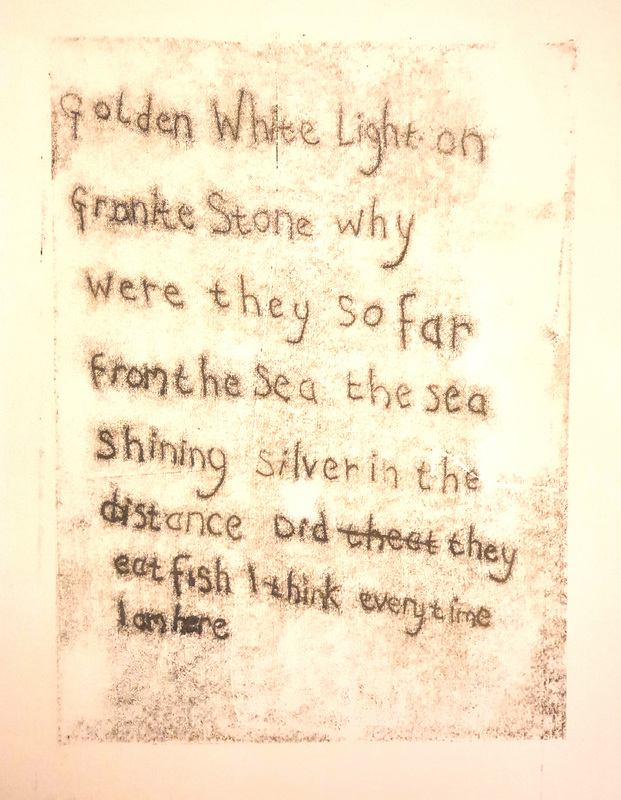 Golden White Light on
Granite Stone why
were they so far
from the Sea the sea
shining silver in the
distance Did theat they
eat fish I think every time
I am here